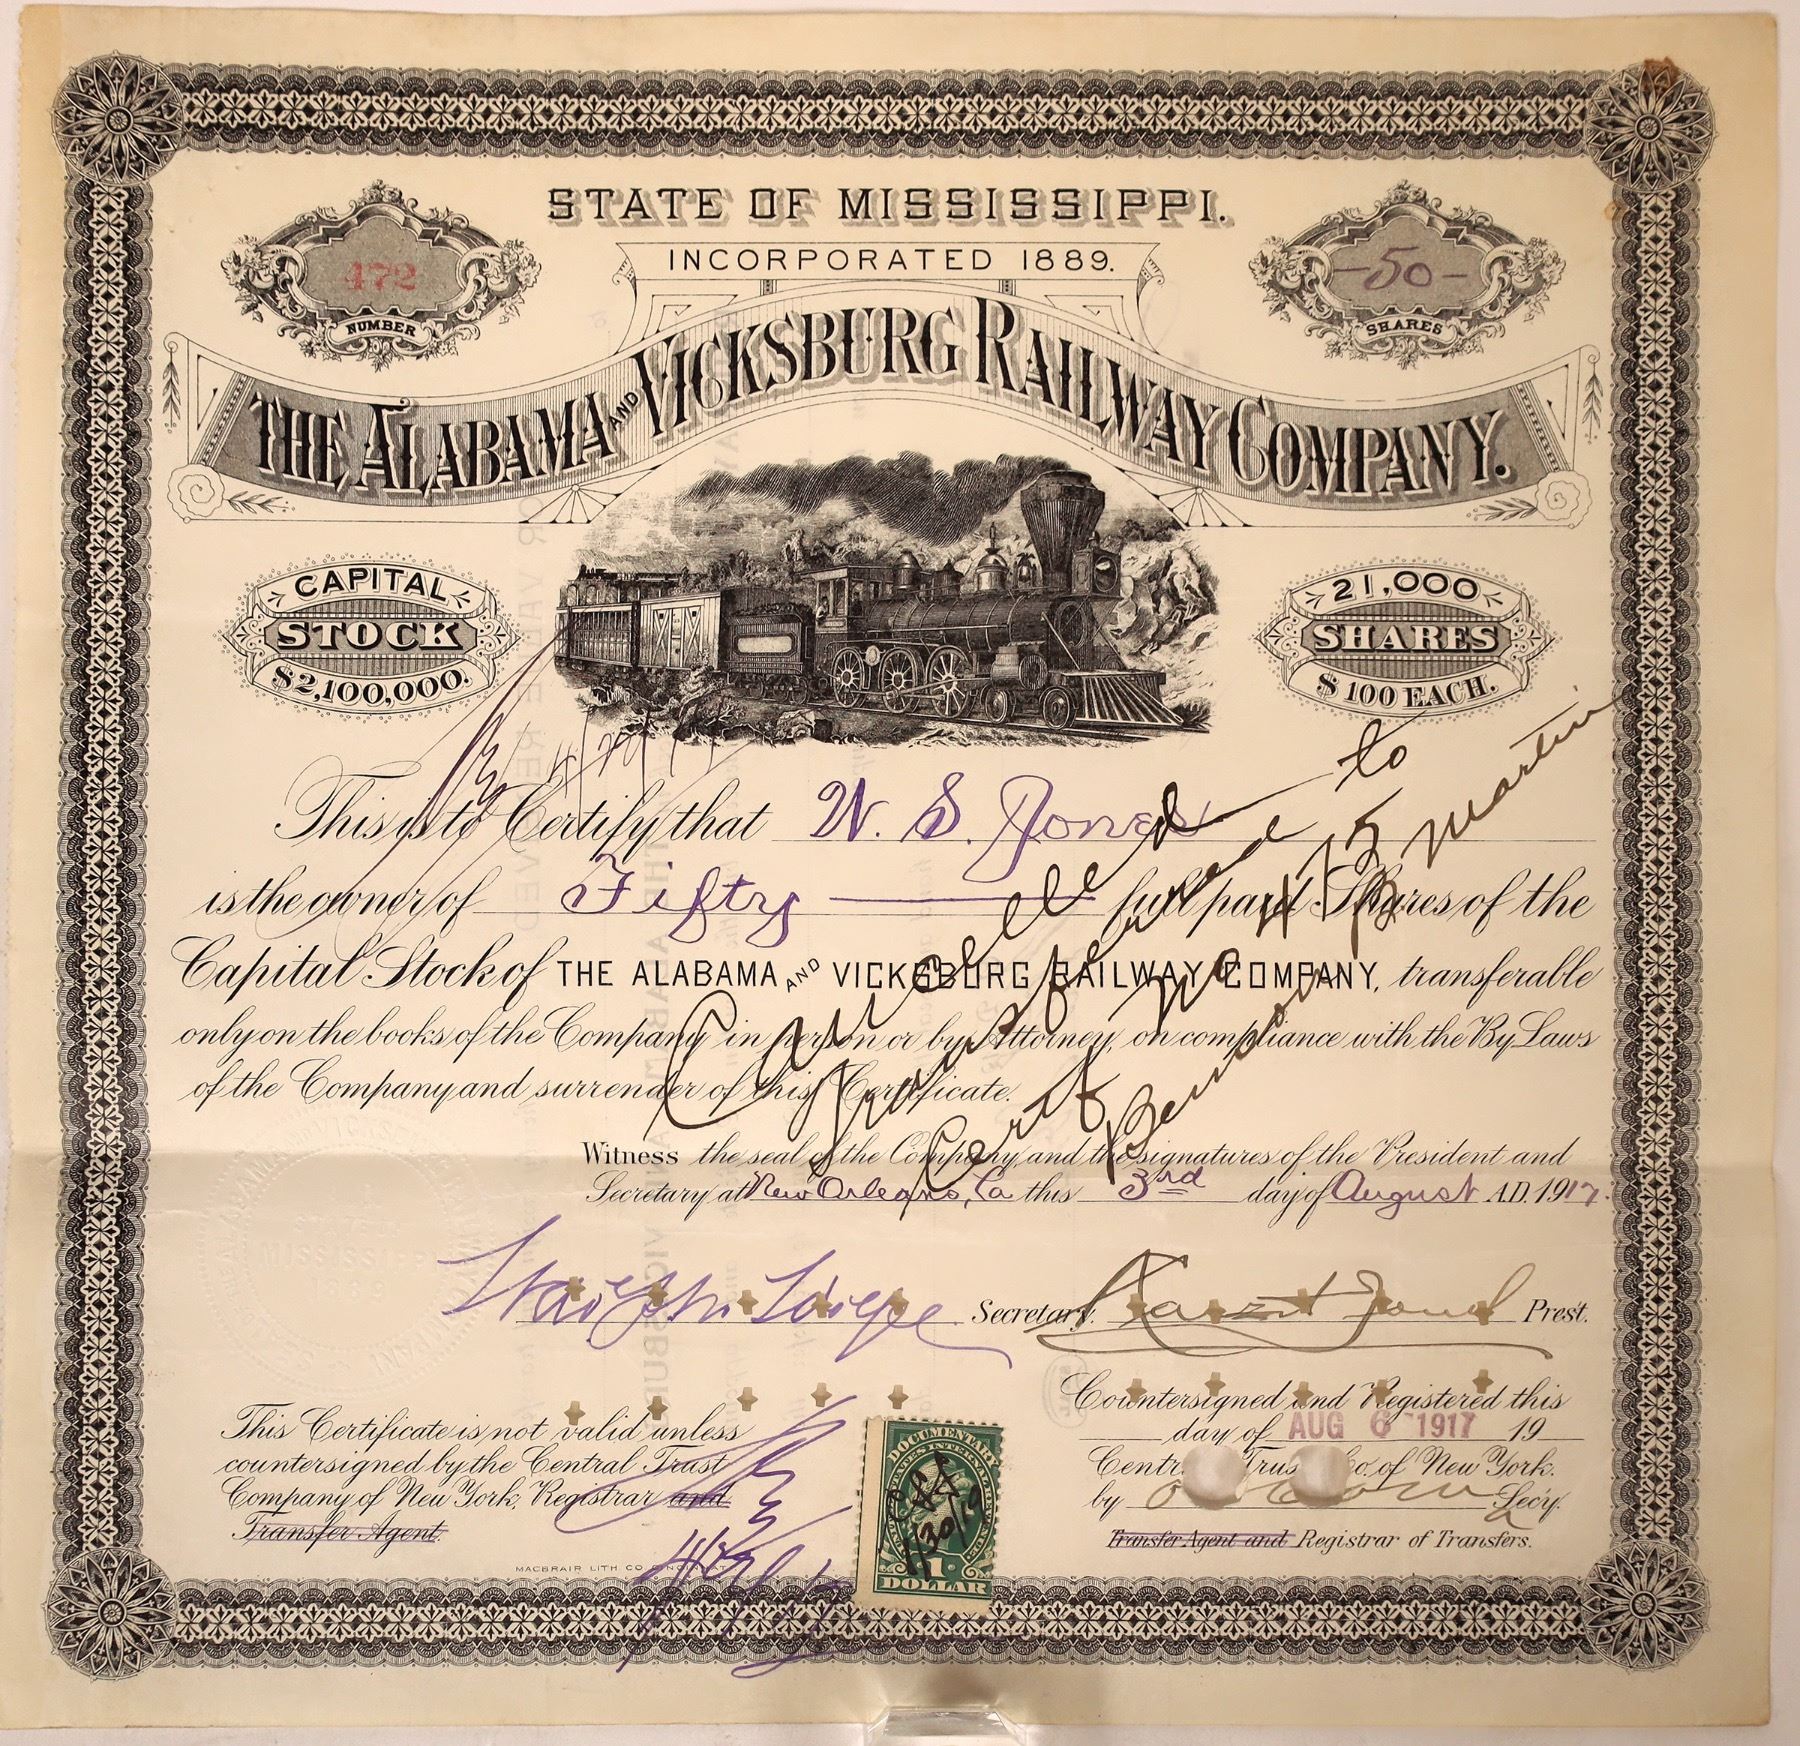 STATE OF MISSISSIPPI.
INCORPORATED 1889.
472
NUMBER
-50-
SHARES
THE ALABAMA AND VICKSBURG RAILWAY COMPANY.
CAPITAL
STOCK
$2,100,000.
21,000
SHARES
$100 EACH.
This is to Certify that W. S. Jones
is the owner of Fifty full paid Shares of the
Capital Stock of THE ALABAMA AND VICKSBURG RAILWAY COMPANY, transferable
only on the books of the Company in person or by Attorney, on compliance with the By Laws
of the Company and surrender of this Certificate.
Cancelled
Transferred to
Certf No 475
Benson B Martin
Witness the seal of the Company, and the signatures of the President and
Secretary at New Orleans, La this 3rd day of August A.D. 1917.
Secretary.
Prest.
MISSISSIPPI
This Certificate is not valid unless
countersigned by the Central Trust
Company of New York, Registrar and
Transfer Agent.
Countersigned and Registered this
day of AUG 6 1917 19
Central Trust Co. of New York.
by Sec'y.
Transfer Agent and Registrar of Transfers.
DOCUMENTARY
1/30/19
1
DOLLAR
MACBRAIR LITH CO CINCINNATI